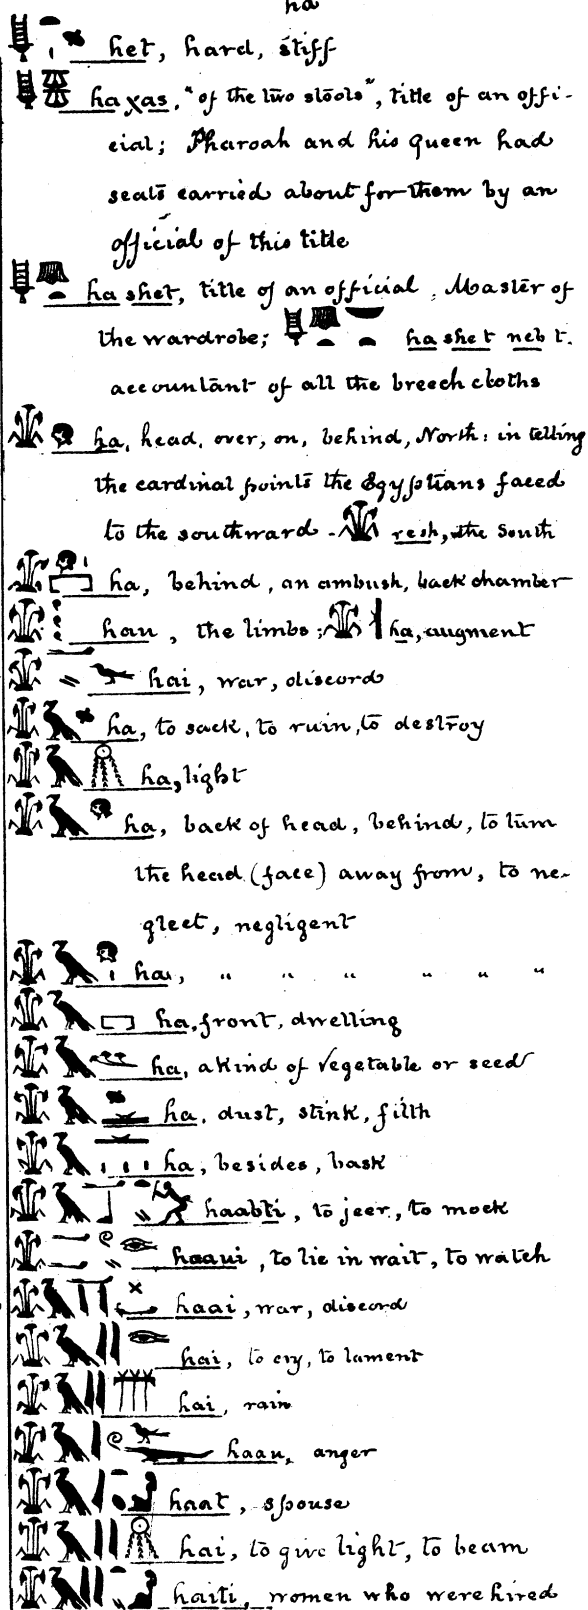 ha
het, hard, stiff
haxas, "of the two stools", title of an offi-
cial; Pharoah and his queen had
seats carried about for them by an
official of this title
ha shet, title of an official, Master of
the wardrobe; ha she t neb t.
accountant of all the breech cloths
ha, head, over, on, behind, North: in telling
the cardinal points the Egyptians faced
to the southward - resh, the South
ha, behind, an ambush, back chamber
hau, the limbs; ha, augment
hai, war, discord
ha, to sack, to ruin, to destroy
ha, light
ha, back of head, behind, to turn
the head (face) away from, to ne-
glect, negligent
ha, " " " " " "
ha, front, dwelling
ha, a kind of vegetable or seed
ha, dust, stink, filth
ha, besides, bask
haabti, to jeer, to mock
haaui, to lie in wait, to watch
haai, war, discord
hai, to cry, to lament
hai, rain
haau, anger
haat, spouse
hai, to give light, to beam
haiti, women who were hired